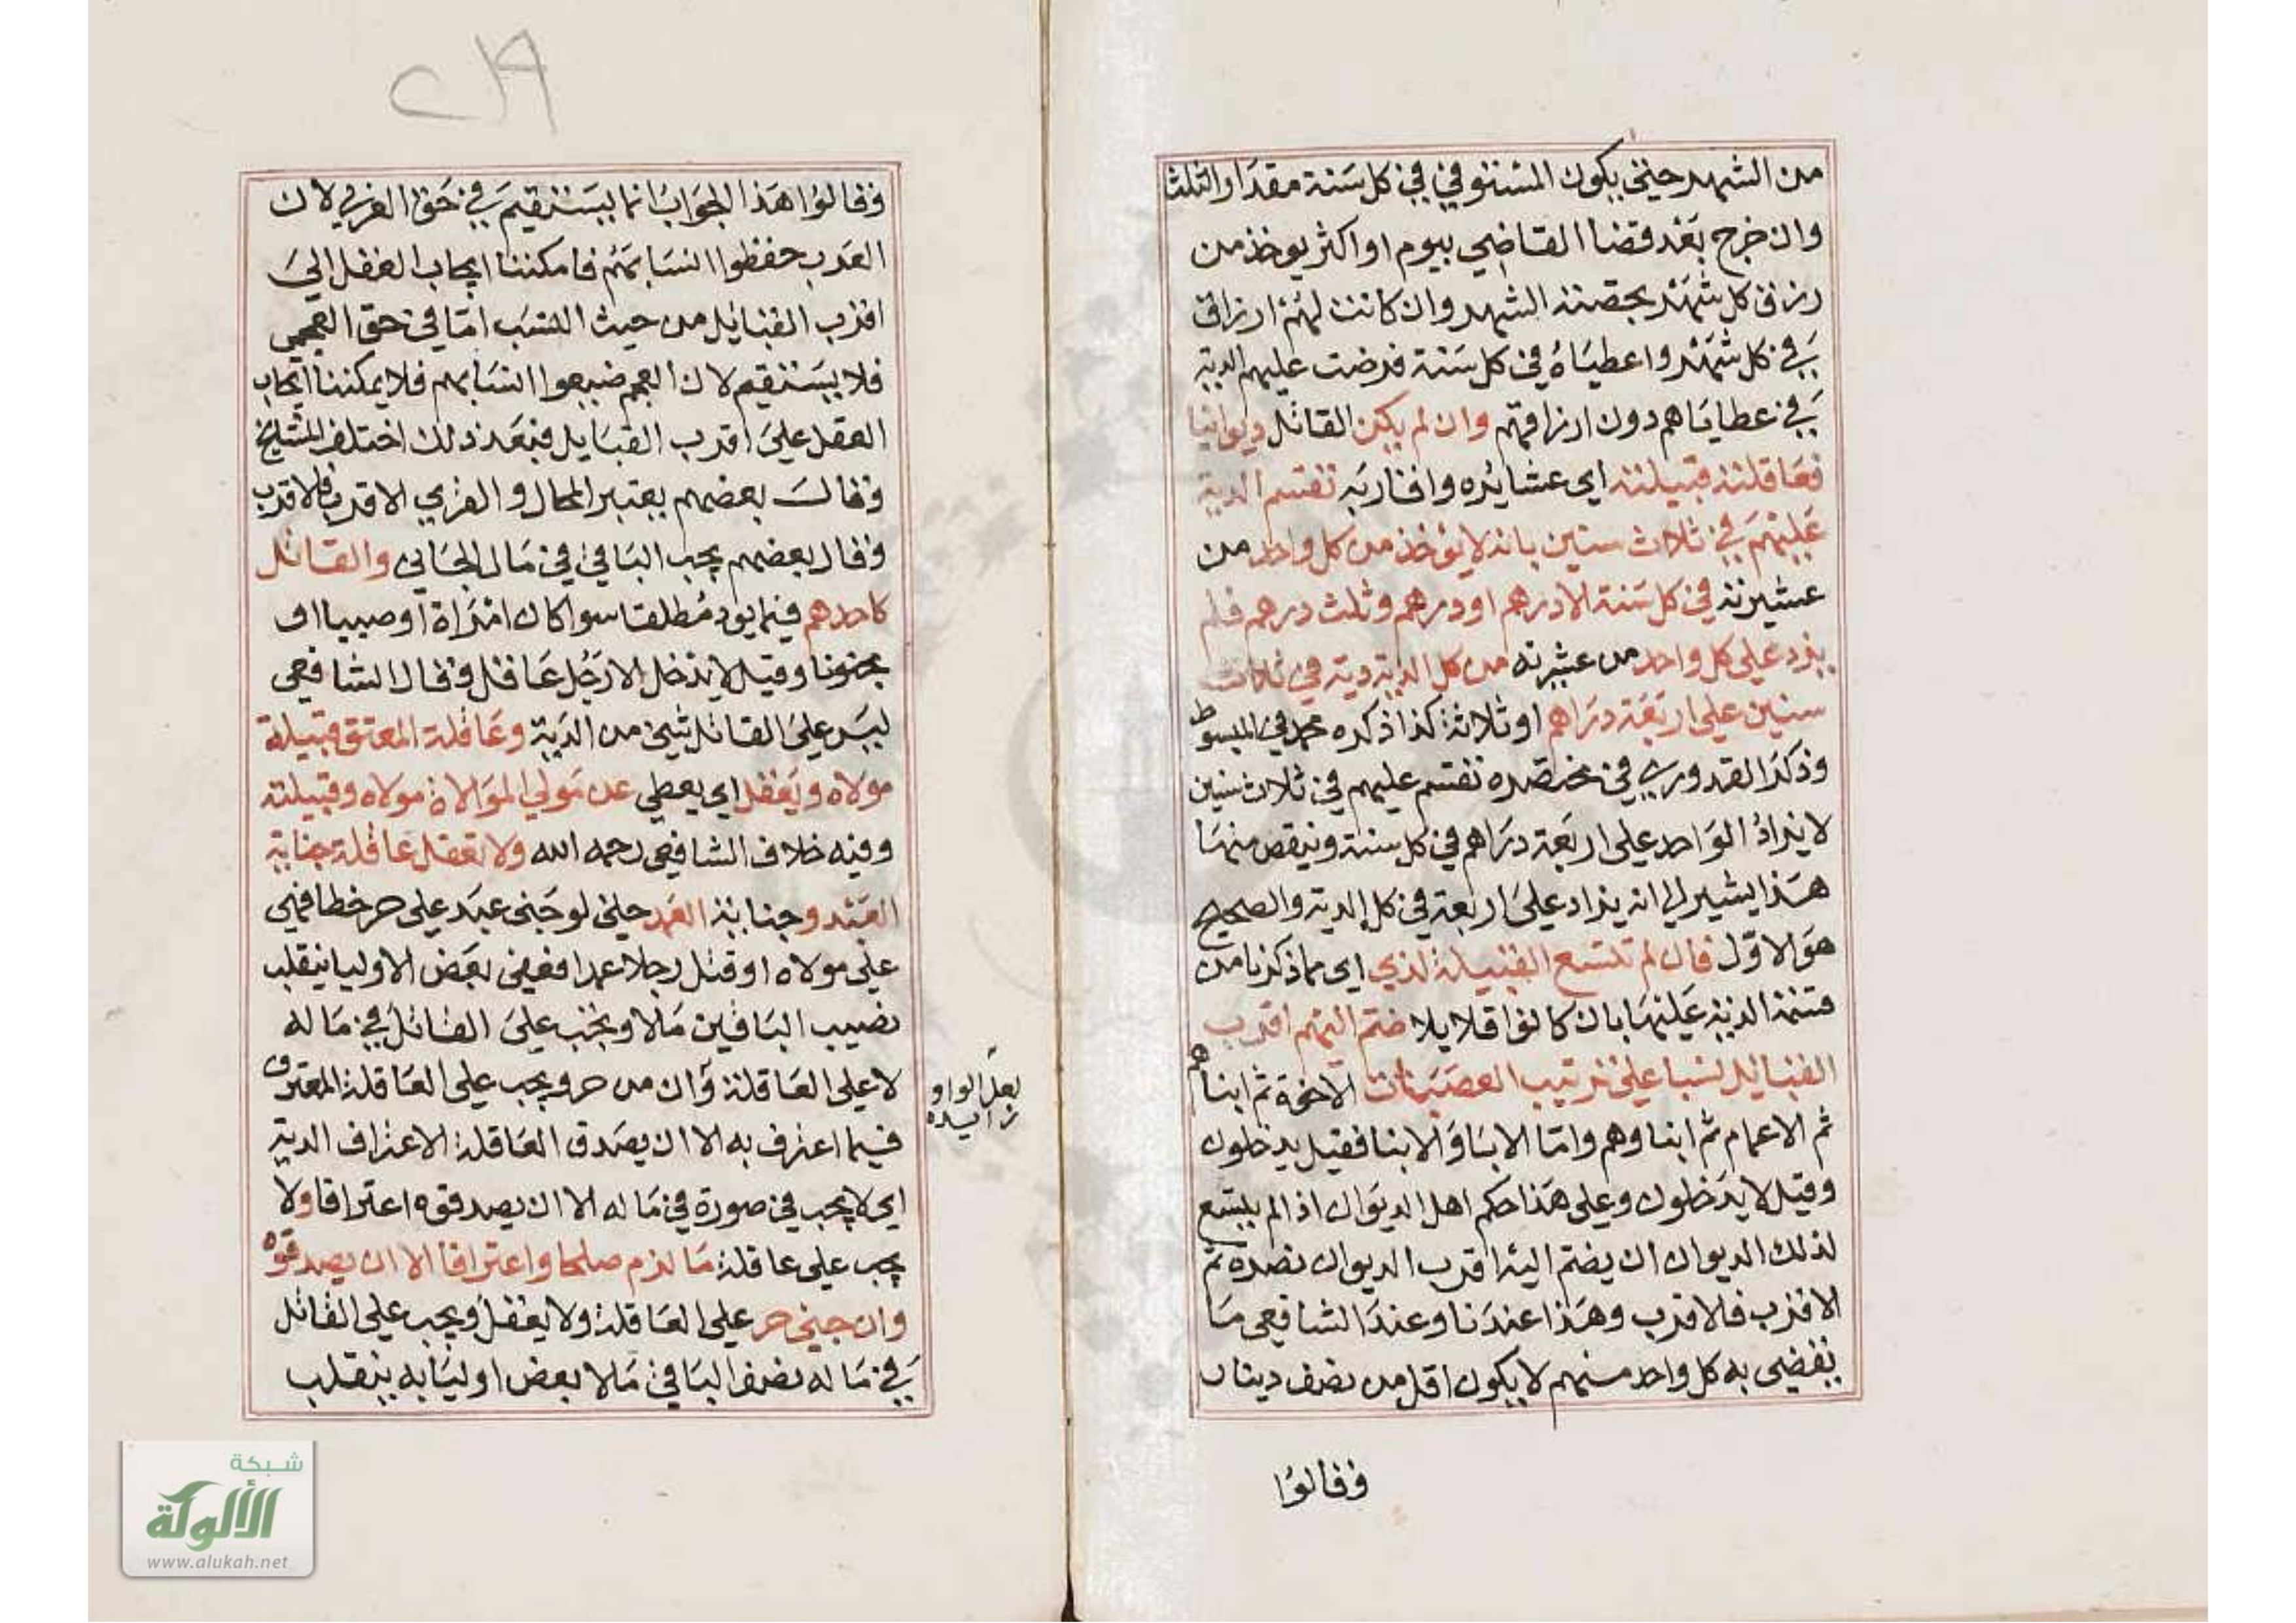 من الشهر حتي يكون المستوفي في كل سنة مقدار الثلث
وان خرج بعد قضا القاضي بيوم او اكثر يوخذ من
رزق كل شهر بحصته الشهر وان كانت لهم ارزاق
في كل شهر واعطياة في كل سنة فرضت عليهم الدية
في عطاياهم دون ارزاقهم وان لم يكن القاتل ديوانيا
فعاقلته قبيلته اي عشائره واقاربه تقسم الدية
عليهم في ثلاث سنين بانه لا يؤخذ من كل واحد من
عشيرته في كل سنة الا درهم او درهم وثلث درهم فلم
يزد على كل واحد من عشرته من كل الدية دية في ثلاث
سنين على اربعة دراهم او ثلاثة كذا ذكره محمد في المبسوط
وذكر القدوري في مختصره تقسم عليهم في ثلاث سنين
لا يزاد الواحد على اربعة دراهم في كل سنة وينقص منها
هذا يشير الي انه يزاد على اربعة في كل الدية والصحيح
هو الاول فان لم تتسع القبيلة لذي اي ما ذكرنا من
قسمة الدية عليها بان كانوا قلايلا ضم اليهم اقرب
القبائل نسبا على ترتيب العصبات الاخوة ثم ابناهم
ثم الاعمام ثم ابناوهم واما الابا والابنا فقيل يدخلون
وقيل لا يدخلون وعلى هذا حكم اهل الديوان اذا لم يتسع
لذلك الديوان ان يضم اليه اقرب الديوان نصره ثم
الاقرب فالاقرب وهذا عندنا وعند الشافعي ما
يقضي به كل واحد منهم لا يكون اقل من نصف دينار
وقالوا
وقالوا هذا الجواب انما يستقيم في حق العربي لان
العرب حفظوا انسابهم فامكننا ايجاب العقل الي
اقرب القبائل من حيث النسب اما في حق العجمي
فلا يستقيم لان العجم ضيعوا انسابهم فلا يمكننا ايجاب
العقل علي اقرب القبايل فبعد ذلك اختلف المشايخ
وقال بعضهم يعتبر المحال والقري الاقرب فالاقرب
وقال بعضهم يجب الباقي في مال الجاني والقاتل
كاحدهم فيما يود مطلقا سوا كان امراة او صبيا او
مجنونا وقيل لا يدخل الا رجل عاقل وقال الشافعي
ليس على القاتل شي من الدية وعاقلة المعتق قبيلة
مولاه ويعقل اي يعطي عن مولي الموالاة مولاه وقبيلته
وفيه خلاف الشافعي رحمه الله ولا تعقل عاقلة جناية
العبد وجناية العمد حتي لو جنى عبد على حر خطا فهي
علي مولاه او قتل رجلا عمدا فعفي بعض الاوليا ينقلب
نصيب الباقين مالا ويجب علي القاتل في ماله
لا على العاقلة وان من حر ويجب على العاقلة المعترف
فيما اعترف به الا ان يصدق العاقلة الاعتراف الدية
اي لا يجب في صورة في ماله الا ان يصدقوه اعترافا ولا
يجب على عاقلة ما لزم صلحا واعترافا الا ان يصدقوه
وان جني حر على العاقلة ولا يعقل ويجب علي القاتل
في ماله نصف الباقي مالا بعض اوليا به ينقلب
لعل الواو
زائيده
شبكة
الألوكة
www.alukah.net